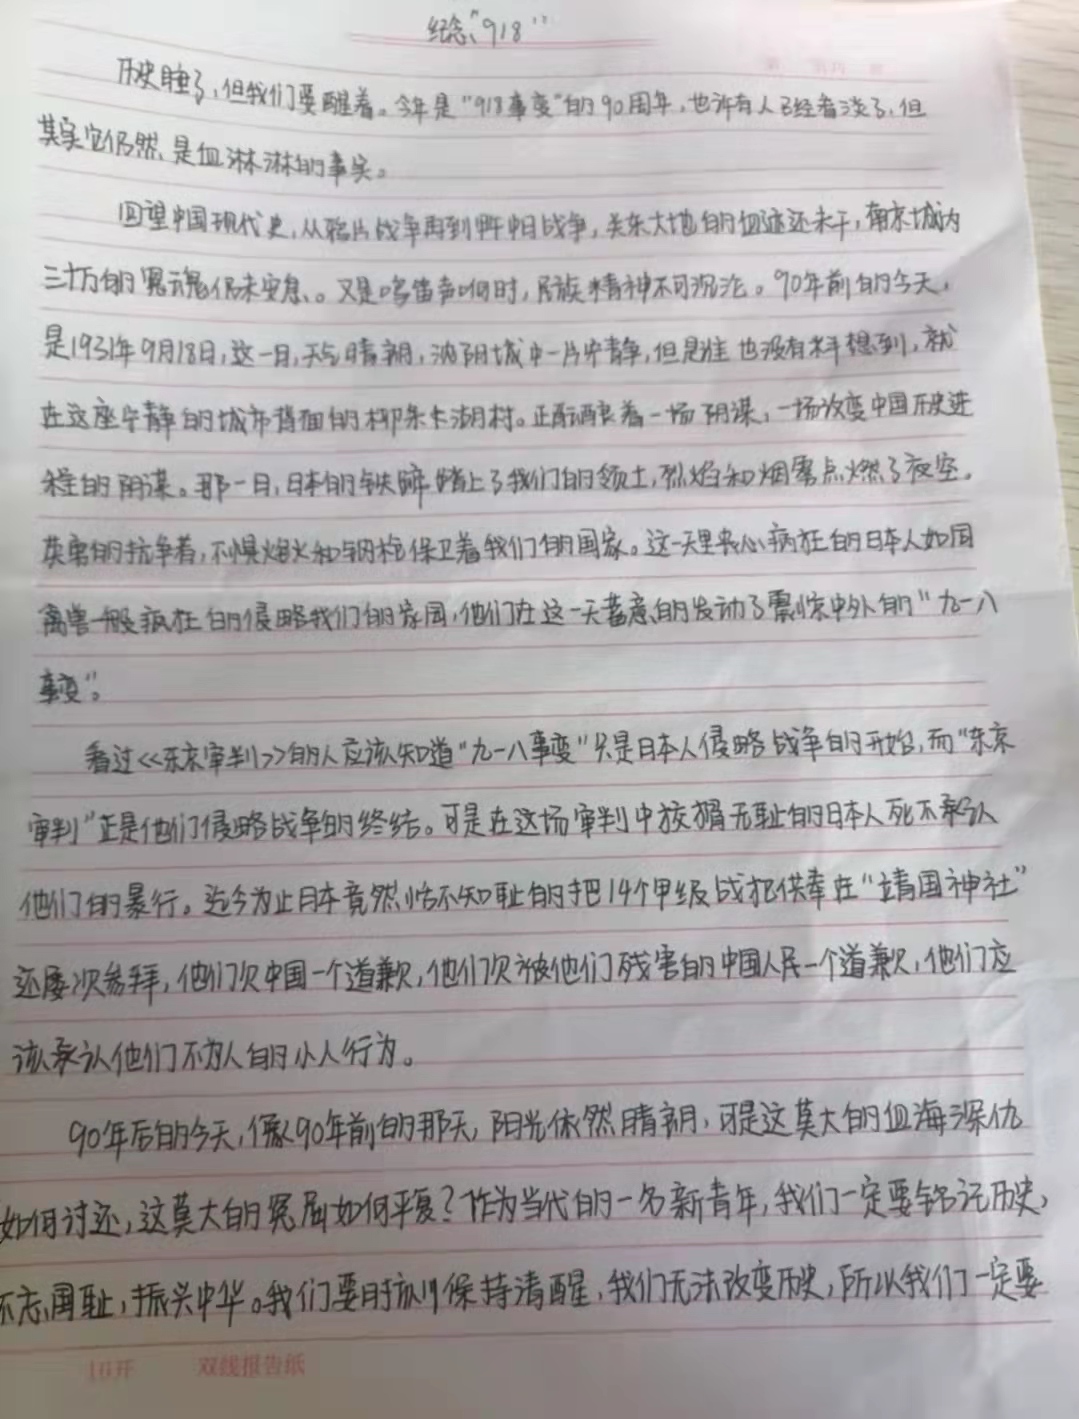 纪念“918”
历史睡了,但我们要醒着。今年是“918事变”的90周年,也许有人已经看淡了,但
其实它仍然是血淋淋的事实。
回望中国现代史,从鸦片战争再到甲午中日战争,关东大地的血迹还未干,南京城内
三十万的冤魂仍未安息。又是鸣笛声响时,民族精神不可沉沦。90年前的今天,
是1931年9月18日,这一日,天气晴朗,沈阳城中一片安静,但是谁也没有料想到,就
在这座宁静的城市背面的柳条湖村。正酝酿着一场阴谋,一场改变中国历史进
程的阴谋。那一日,日本的铁蹄踏上了我们的领土,烈焰和烟雾点燃了夜空。
英勇的抗争着,不惧炮火和钢枪保卫着我们的国家。这一天里丧心病狂的日本人如同
禽兽一般疯狂的侵略我们的家园,他们在这一天蓄意的发动了震惊中外的“九一八
事变”。
看过<<东京审判>>的人应该知道“九一八事变”只是日本人侵略战争的开始,而“东京
审判”正是他们侵略战争的终结。可是在这场审判中狡猾无耻的日本人死不承认
他们的暴行。迄今为止日本竟然恬不知耻的把14个甲级战犯供奉在“靖国神社”
还屡次参拜,他们欠中国一个道歉,他们欠被他们残害的中国人民一个道歉,他们应
该承认他们不为人的小人行为。
90年后的今天,像90年前的那天,阳光依然晴朗,可是这莫大的血海深仇
如何讨还,这莫大的冤屈如何平复?作为当代的一名新青年,我们一定要铭记历史,
不忘国耻,振兴中华。我们要时刻保持清醒,我们无法改变历史,所以我们一定要
16开 双线报告纸